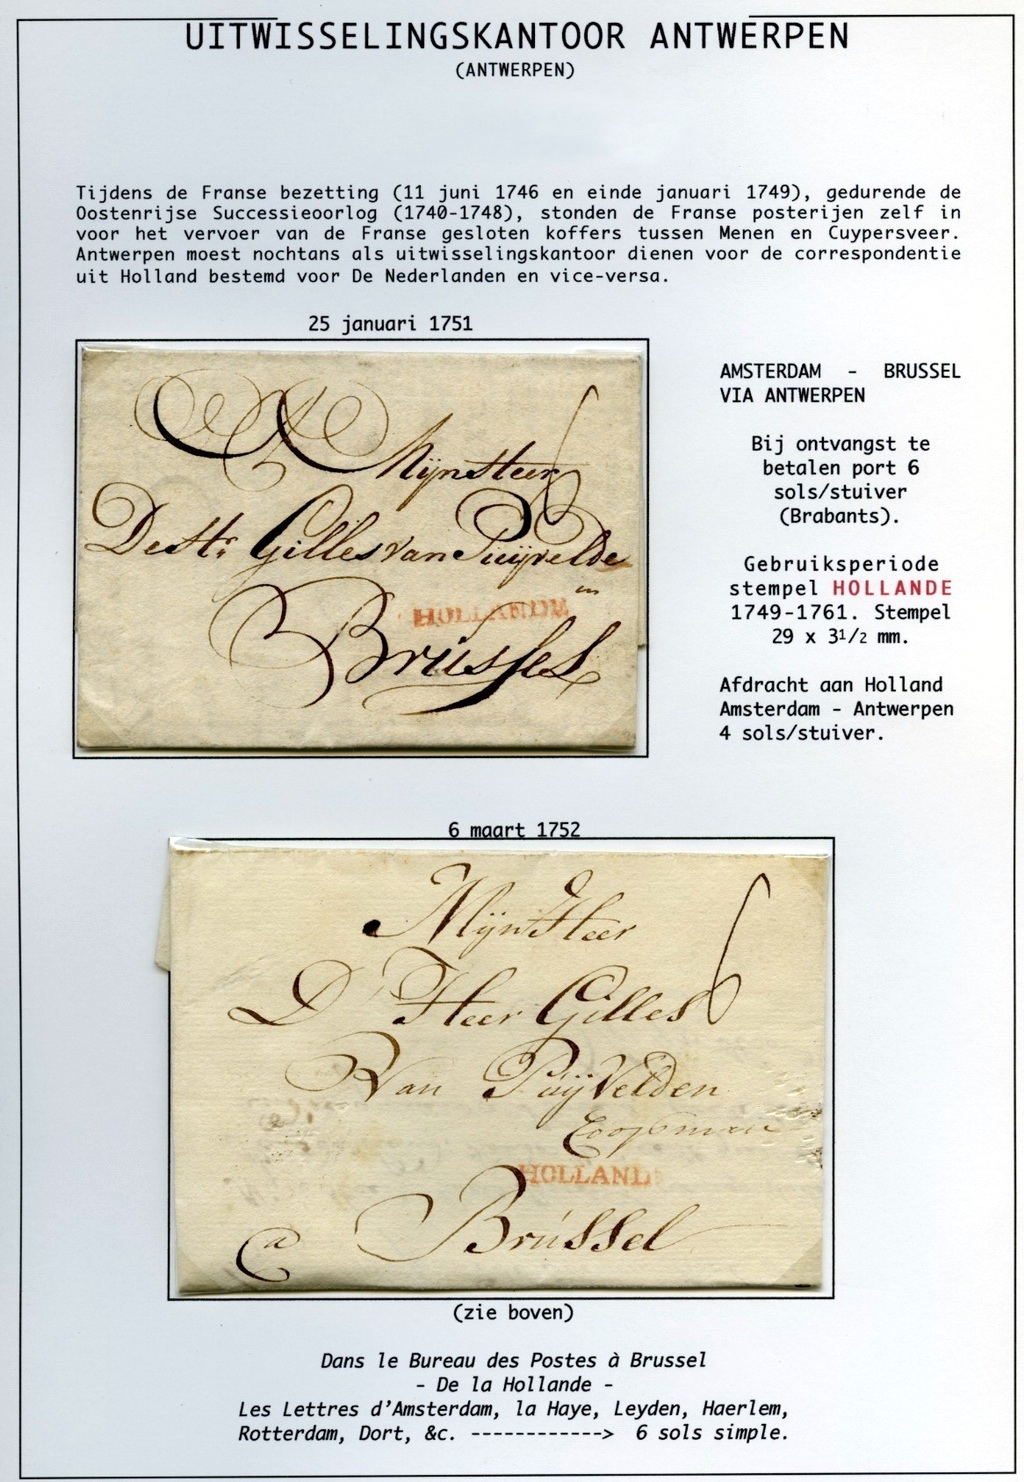 UITWISSELINGSKANTOOR ANTWERPEN
(ANTWERPEN)
Tijdens de Franse bezetting (11 juni 1746 en einde januari 1749), gedurende de
Oostenrijse Successieoorlog (1740-1748), stonden de Franse posterijen zelf in
voor het vervoer van de Franse gesloten koffers tussen Menen en Cuypersveer.
Antwerpen moest nochtans als uitwisselingskantoor dienen voor de correspondentie
uit Holland bestemd voor De Nederlanden en vice-versa.
25 januari 1751
Mijnheer
6
De Hr Gilles van Puijvelde
in
HOLLANDE
Brussel
AMSTERDAM - BRUSSEL
VIA ANTWERPEN
Bij ontvangst te
betalen port 6
sols/stuiver
(Brabants).
Gebruiksperiode
stempel HOLLANDE
1749-1761. Stempel
29 x 3½ mm.
Afdracht aan Holland
Amsterdam - Antwerpen
4 sols/stuiver.
6 maart 1752
Mijn Heer
6
D Heer Gilles
Van PuijVelden
Coopman
HOLLAND
a Brussel
(zie boven)
Dans le Bureau des Postes à Brussel
- De la Hollande -
Les Lettres d'Amsterdam, la Haye, Leyden, Haerlem,
Rotterdam, Dort, &c. ------------> 6 sols simple.